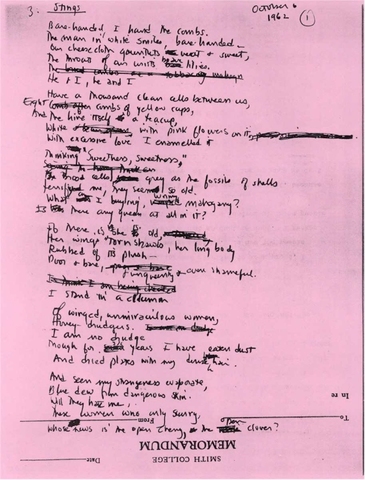 3. Stings
October 6
1962
1
Bare-handed I hand the combs.
The man in white smiles, bare-handed —
Our cheesecloth gauntlets neat & sweet,
The throats of our wrists brave lilies.
He & I, he and I
Have a thousand clean cells between us,
Eight combs of yellow cups,
And the hive itself a teacup,
White with pink flowers on it,
With excessive love I enamelled it
Thinking "Sweetness, sweetness,"
The brood cells grey as the fossils of shells
Terrified me, they seemed so old.
What I buying, wormy mahogany?
Is there any queen at all in it?
If there is, she is old,
Her wings torn shawls, her long body
Rubbed of its plush —
Poor & bare, & unqueenly & even shameful.
I stand in a column
Of winged, unmiraculous women,
Honey-drudgers.
I am no drudge
Though for years I have eaten dust
And dried plates with my dense hair.
And seen my strangeness evaporate,
Blue dew from dangerous skin.
Will they hate me,
These women who only scurry,
Whose news is the open cherry, the open clover?
To
From
In re
Date
MEMORANDUM
SMITH COLLEGE